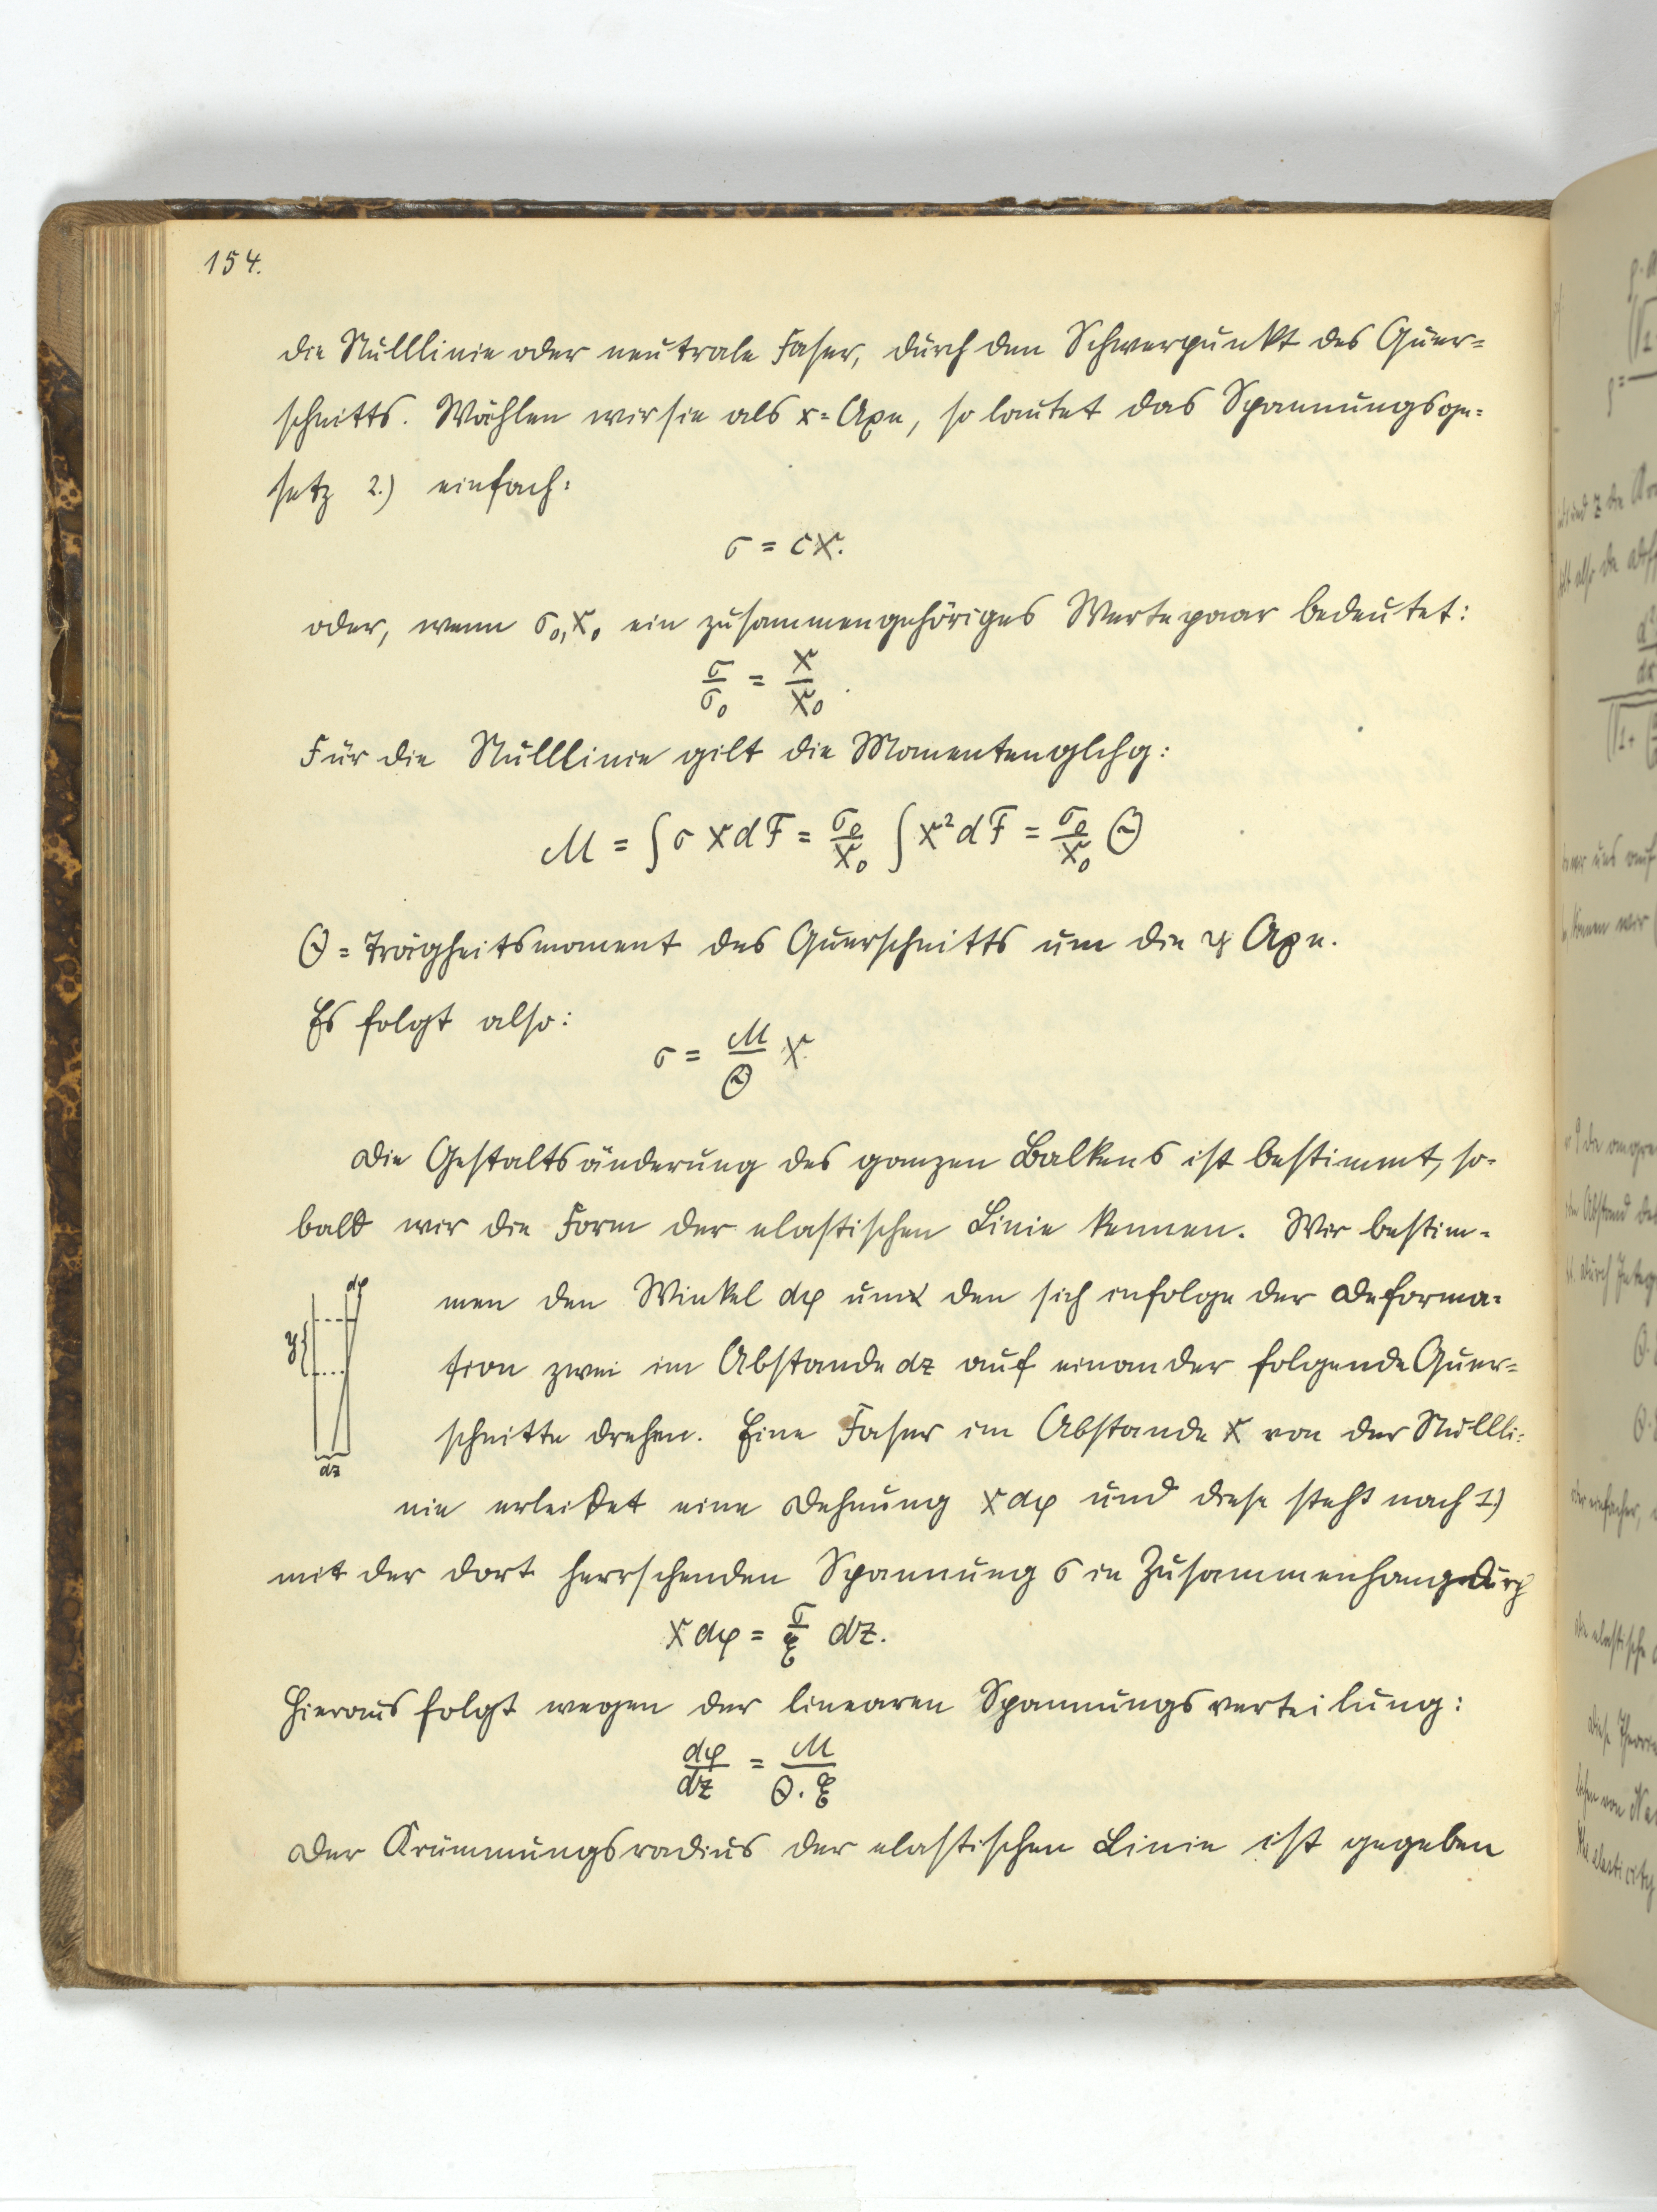 154.
die Nulllinie oder neutrale Faser, durch den Schwerpunkt des Quer=
schnitts. Wählen wir sie als x=Axe, so lautet das Spannungsge=
setz 2.) einfach:
σ = cx.
oder, wenn σ₀, x₀ ein zusammengehöriges Wertepaar bedeutet:
σ/σ₀ = x/x₀.
Für die Nulllinie gilt die Momentenglchg:
M = ∫σ x dF = σ₀/x₀ ∫x² dF = σ₀/x₀ Θ
Θ = Trägheitsmoment des Querschnitts um die y Axe.
Es folgt also:
σ = M/Θ x
Die Gestaltsänderung des ganzen Balkens ist bestimmt, so-
bald wir die Form der elastischen Linie kennen. Wir bestim-
men den Winkel dφ um den sich infolge der Deforma=
tion zwei im Abstande dz auf einander folgende Quer=
schnitte drehen. Eine Faser im Abstande x von der Nullli=
nie erleidet eine Dehnung x dφ und diese steht nach 1)
mit der dort herrschenden Spannung σ in Zusammenhang durch
dφ
y
dz
x dφ = σ/E dz.
Hieraus folgt wegen der linearen Spannungsverteilung:
dφ/dz = M/Θ.E
Der Krümmungsradius der elastischen Linie ist gegeben